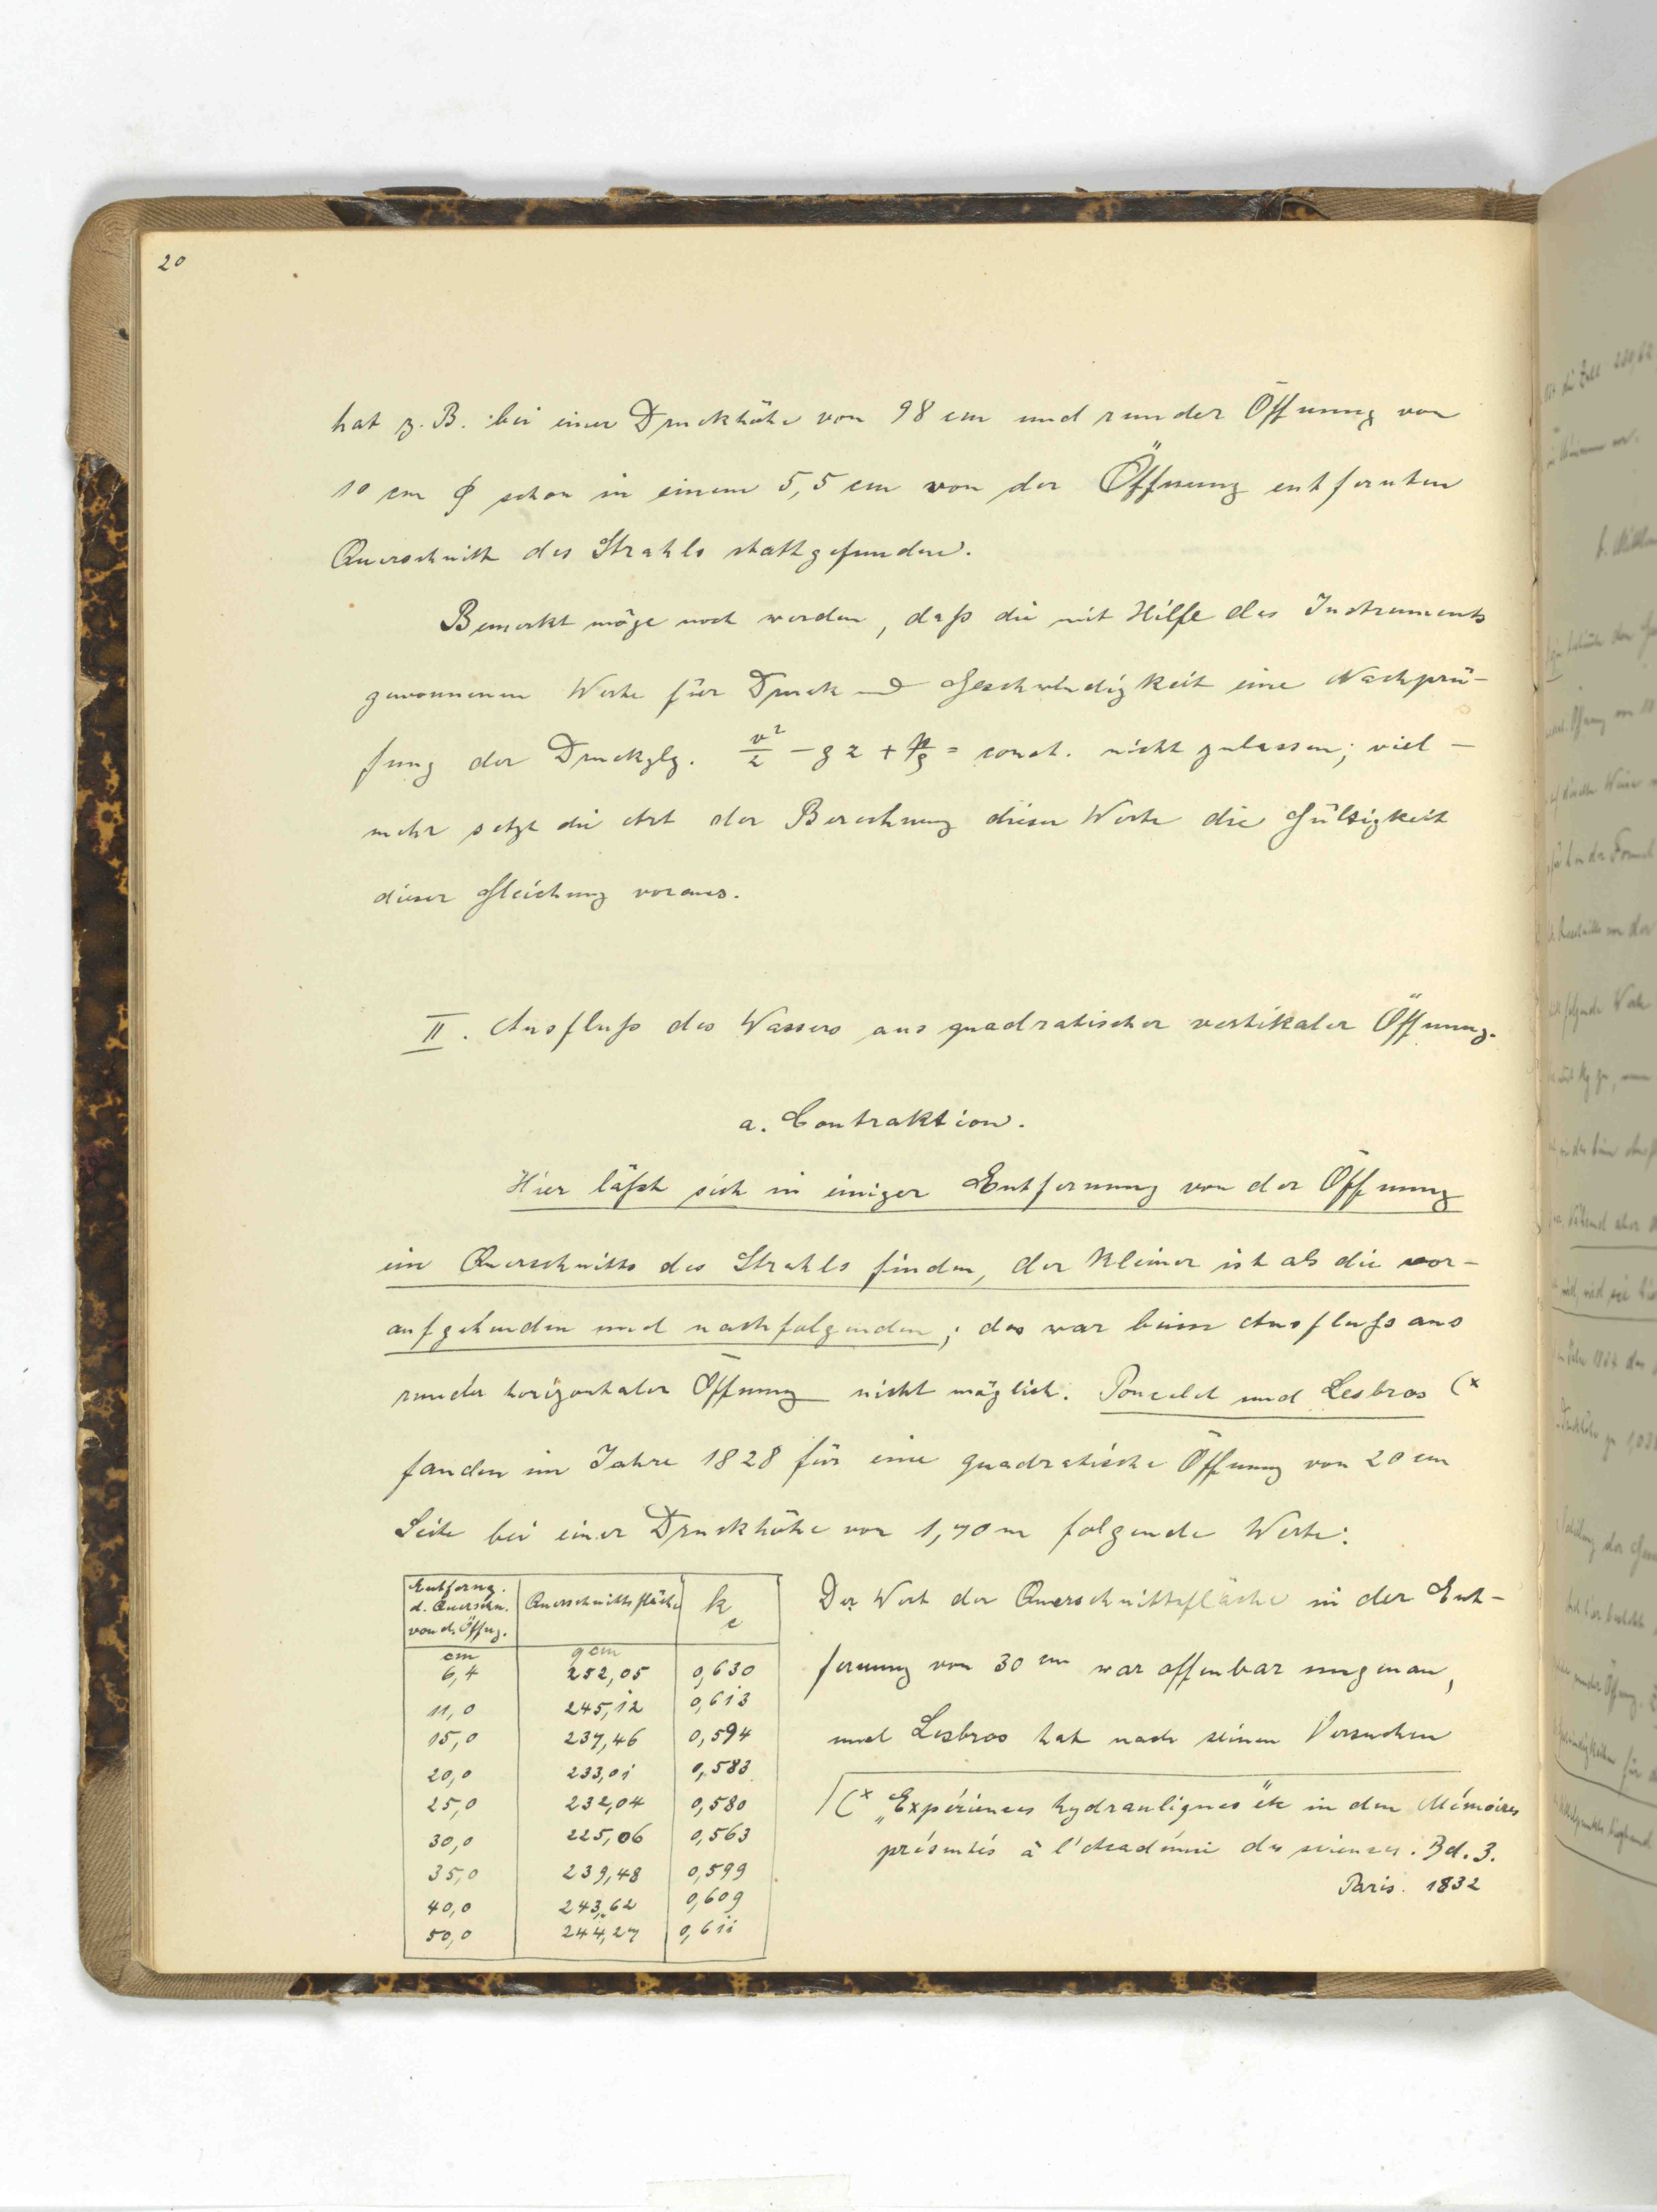 20
hat z. B. bei einer Druckhöhe von 98 cm und runder Öffnung von
10 cm ϕ schon in einem 5,5 cm von der Öffnung entfernten
Querschnitt des Strahls stattgefunden.
Bemerkt möge noch werden, daß die mit Hilfe des Instruments
gewonnenen Werte für Druck und Geschwindigkeit eine Nachprü-
fung der Druckglg. v²/2 - gz + p/ϱ = const. nicht zulassen; viel-
mehr setzt die Art der Berechnung dieser Werte die Gültigkeit
dieser Gleichung voraus.
II. Ausfluß des Wassers aus quadratischer vertikaler Öffnung.
a. Contraktion.
Hier läßt sich in einiger Entfernung von der Öffnung
ein Querschnitt des Strahls finden, der kleiner ist als die vor-
aufgehenden und nachfolgenden; das war beim Ausfluß aus
runder horizontaler Öffnung nicht möglich. Poncelet und Lesbros (x
fanden im Jahre 1828 für eine quadratische Öffnung von 20 cm
Seite bei einer Druckhöhe von 1,70 m folgende Werte:
Entferng. d. Querschn. von d. Öffng. Querschnittsfläche kc
cm qcm
6,4 252,05 0,630
11,0 245,12 0,613
15,0 237,46 0,594
20,0 233,01 0,583
25,0 232,04 0,580
30,0 225,06 0,563
35,0 239,48 0,599
40,0 243,62 0,609
50,0 244,27 0,611
Der Wert der Querschnittsfläche in der Ent-
fernung von 30 cm war offenbar ungenau,
und Lesbros hat nach seinen Versuchen
(x „Expériences hydrauliques" etc in den Mémoires
présentés à l'Académie des sciences. Bd. 3.
Paris. 1832